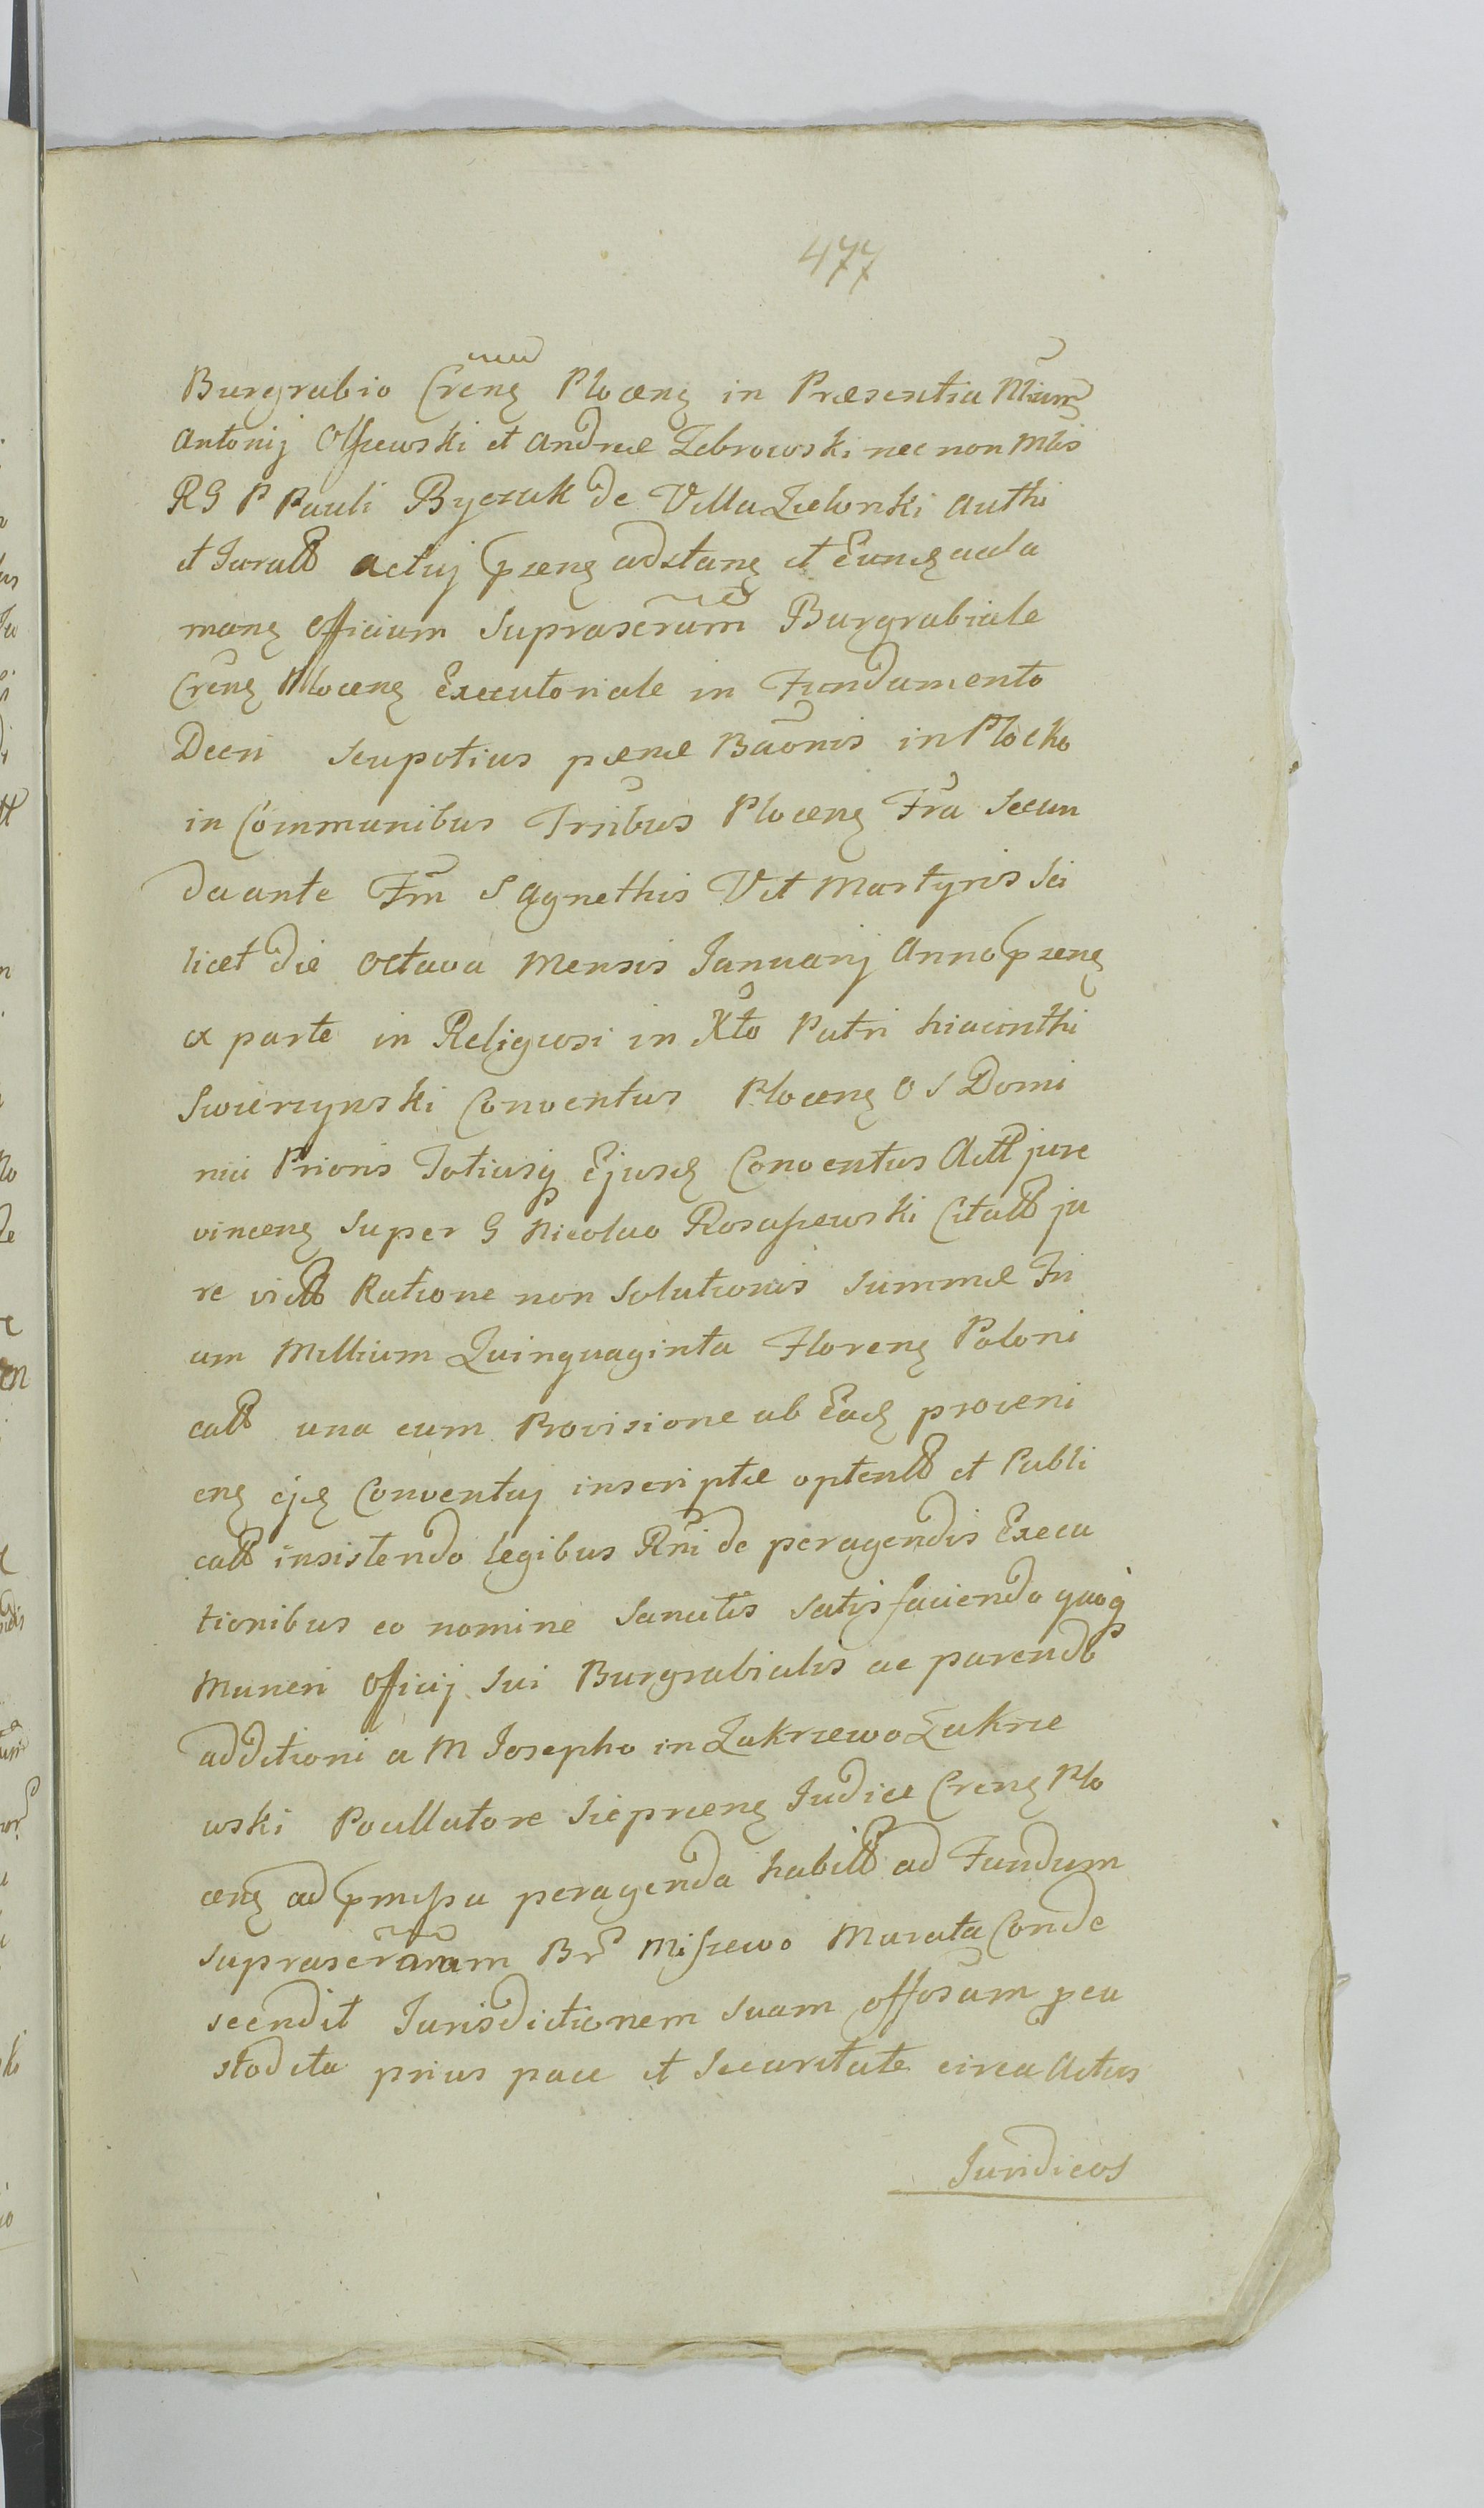 477
Burgrabio Crenꝫ Plocenꝫ in Præsentia Mcium
Antonij Olszewski et Andreæ Zebrowski nec non Mtis
RG P Pauli Byczuk de Villa Zielonki Authi
et Juratt Actuj przenꝫ adstanꝫ et Eundꝫ accla
manꝫ Officium Suprascrum Burgrabiale
Crenꝫ Plocenꝫ Executoriale in Fundamento
Decri seu potius pænæ Baonis in Plocko
in Communibus Trnibus Plocenꝫ Fria Secun
da ante Fm S Agnethis V et Martyris Sci
licet die Octava Mensis Januarij Anno przenꝫ
ex parte in Religiosi in Xto Patri hiacinthi
Swierczynski Conventus Plocenꝫ O S Domi
nici Prioris Totiusq Ejusdꝫ Conventus Actt jure
vincenꝫ super G Nicolao Rosciszewski Citatt ju
re victt Ratione non Solutionis Summæ Tri
um Millium Quinquaginta Florenꝫ Poloni
catt una cum Provisione ab Eadꝫ proveni
enꝫ ejdꝫ Conventuj inscriptæ optentt et Publi
catt insistendo legibus Rni de peragendis Execu
tionibus eo nomine Sancitis satisfaciendo quoq
Muneri Officij Sui Burgrabialis ac parendo
additioni a M Josepho in Zakrzewo Zakrze
wski Pocillatore Sieprcenꝫ Judice Crenꝫ Plo
cenꝫ ad pmissa peragenda habitt ad Fundum
suprascraram Br Miszewo Murata Conde
scendit Jurisdictionem suam offosam pcu
stodita prius pace et Securitate circa Actus
Juridicos